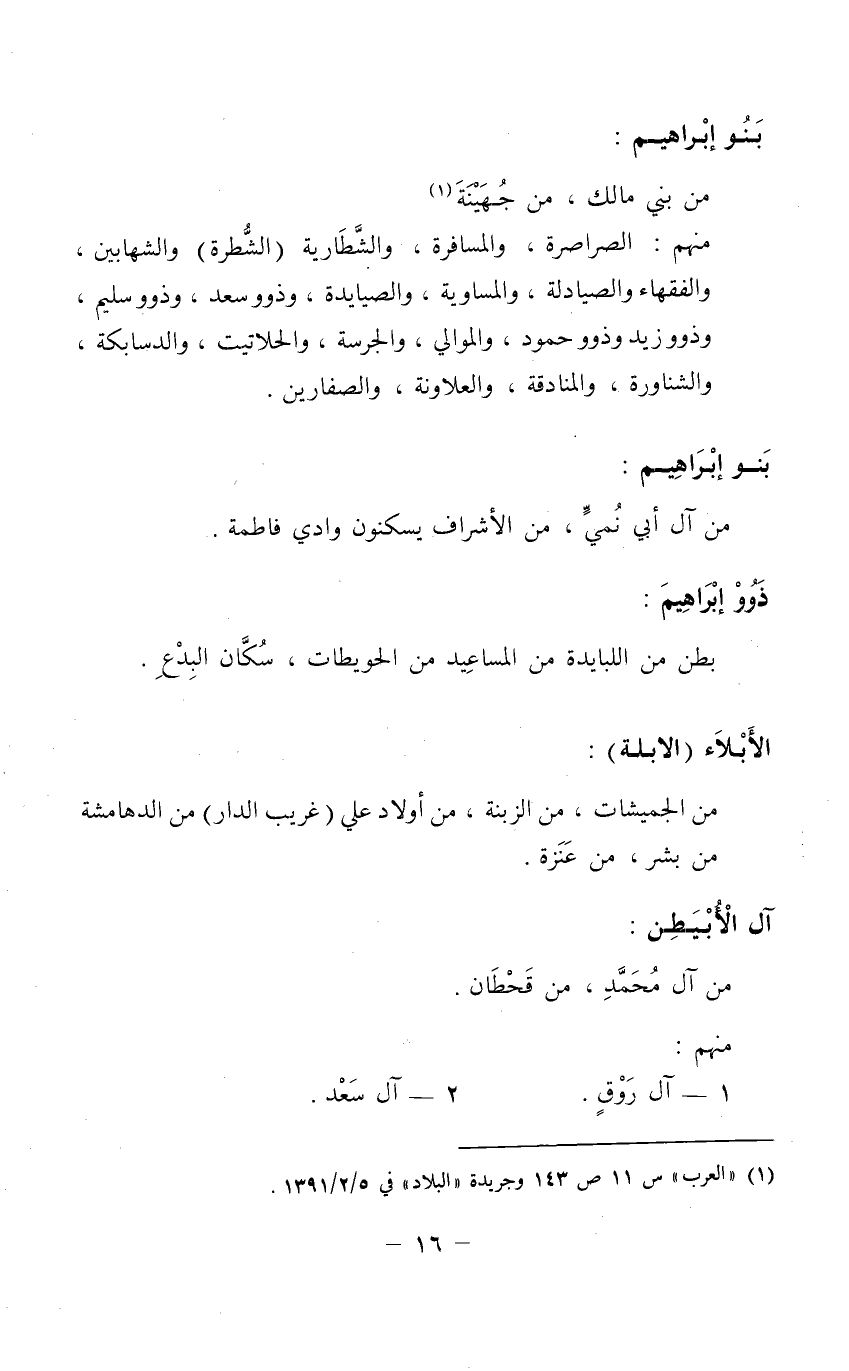 بَنُو إبْراهيم :
من بني مالك ، من جُهَيْنَةَ(١)
منهم : الصراصرة ، والمسافرة ، والشَّطَارية (الشُّطرة) والشهابين ،
والفقهاء والصيادلة ، والمساوية ، والصيايدة ، وذوو سعد ، وذوو سليم ،
وذوو زيد وذوو حمود ، والموالي ، والجرسة ، والحلاتيت ، والدسابكة ،
والشناورة ، والمنادقة ، والعلاونة ، والصفارين .
بَنو إبْرَاهِيم :
من آل أبي نُميٍّ ، من الأشراف يسكنون وادي فاطمة .
ذَوُوْ إبْرَاهِيمَ :
بطن من اللبايدة من المساعِيد من الحويطات ، سُكَّان البِدْعِ .
الأَبْلاَء (الابلة) :
من الجميشات ، من الزبنة ، من أولاد علي (غريب الدار) من الدهامشة
من بشر ، من عَنَزة .
آل الْأُبْيَطِن :
من آل مُحَمَّدٍ ، من قَحْطَان .
منهم :
١ — آل رَوْقٍ . ٢ — آل سَعْد .
(١) «العرب» س ١١ ص ١٤٣ وجريدة «البلاد» في ١٣٩١/٢/٥ .
– ١٦ –